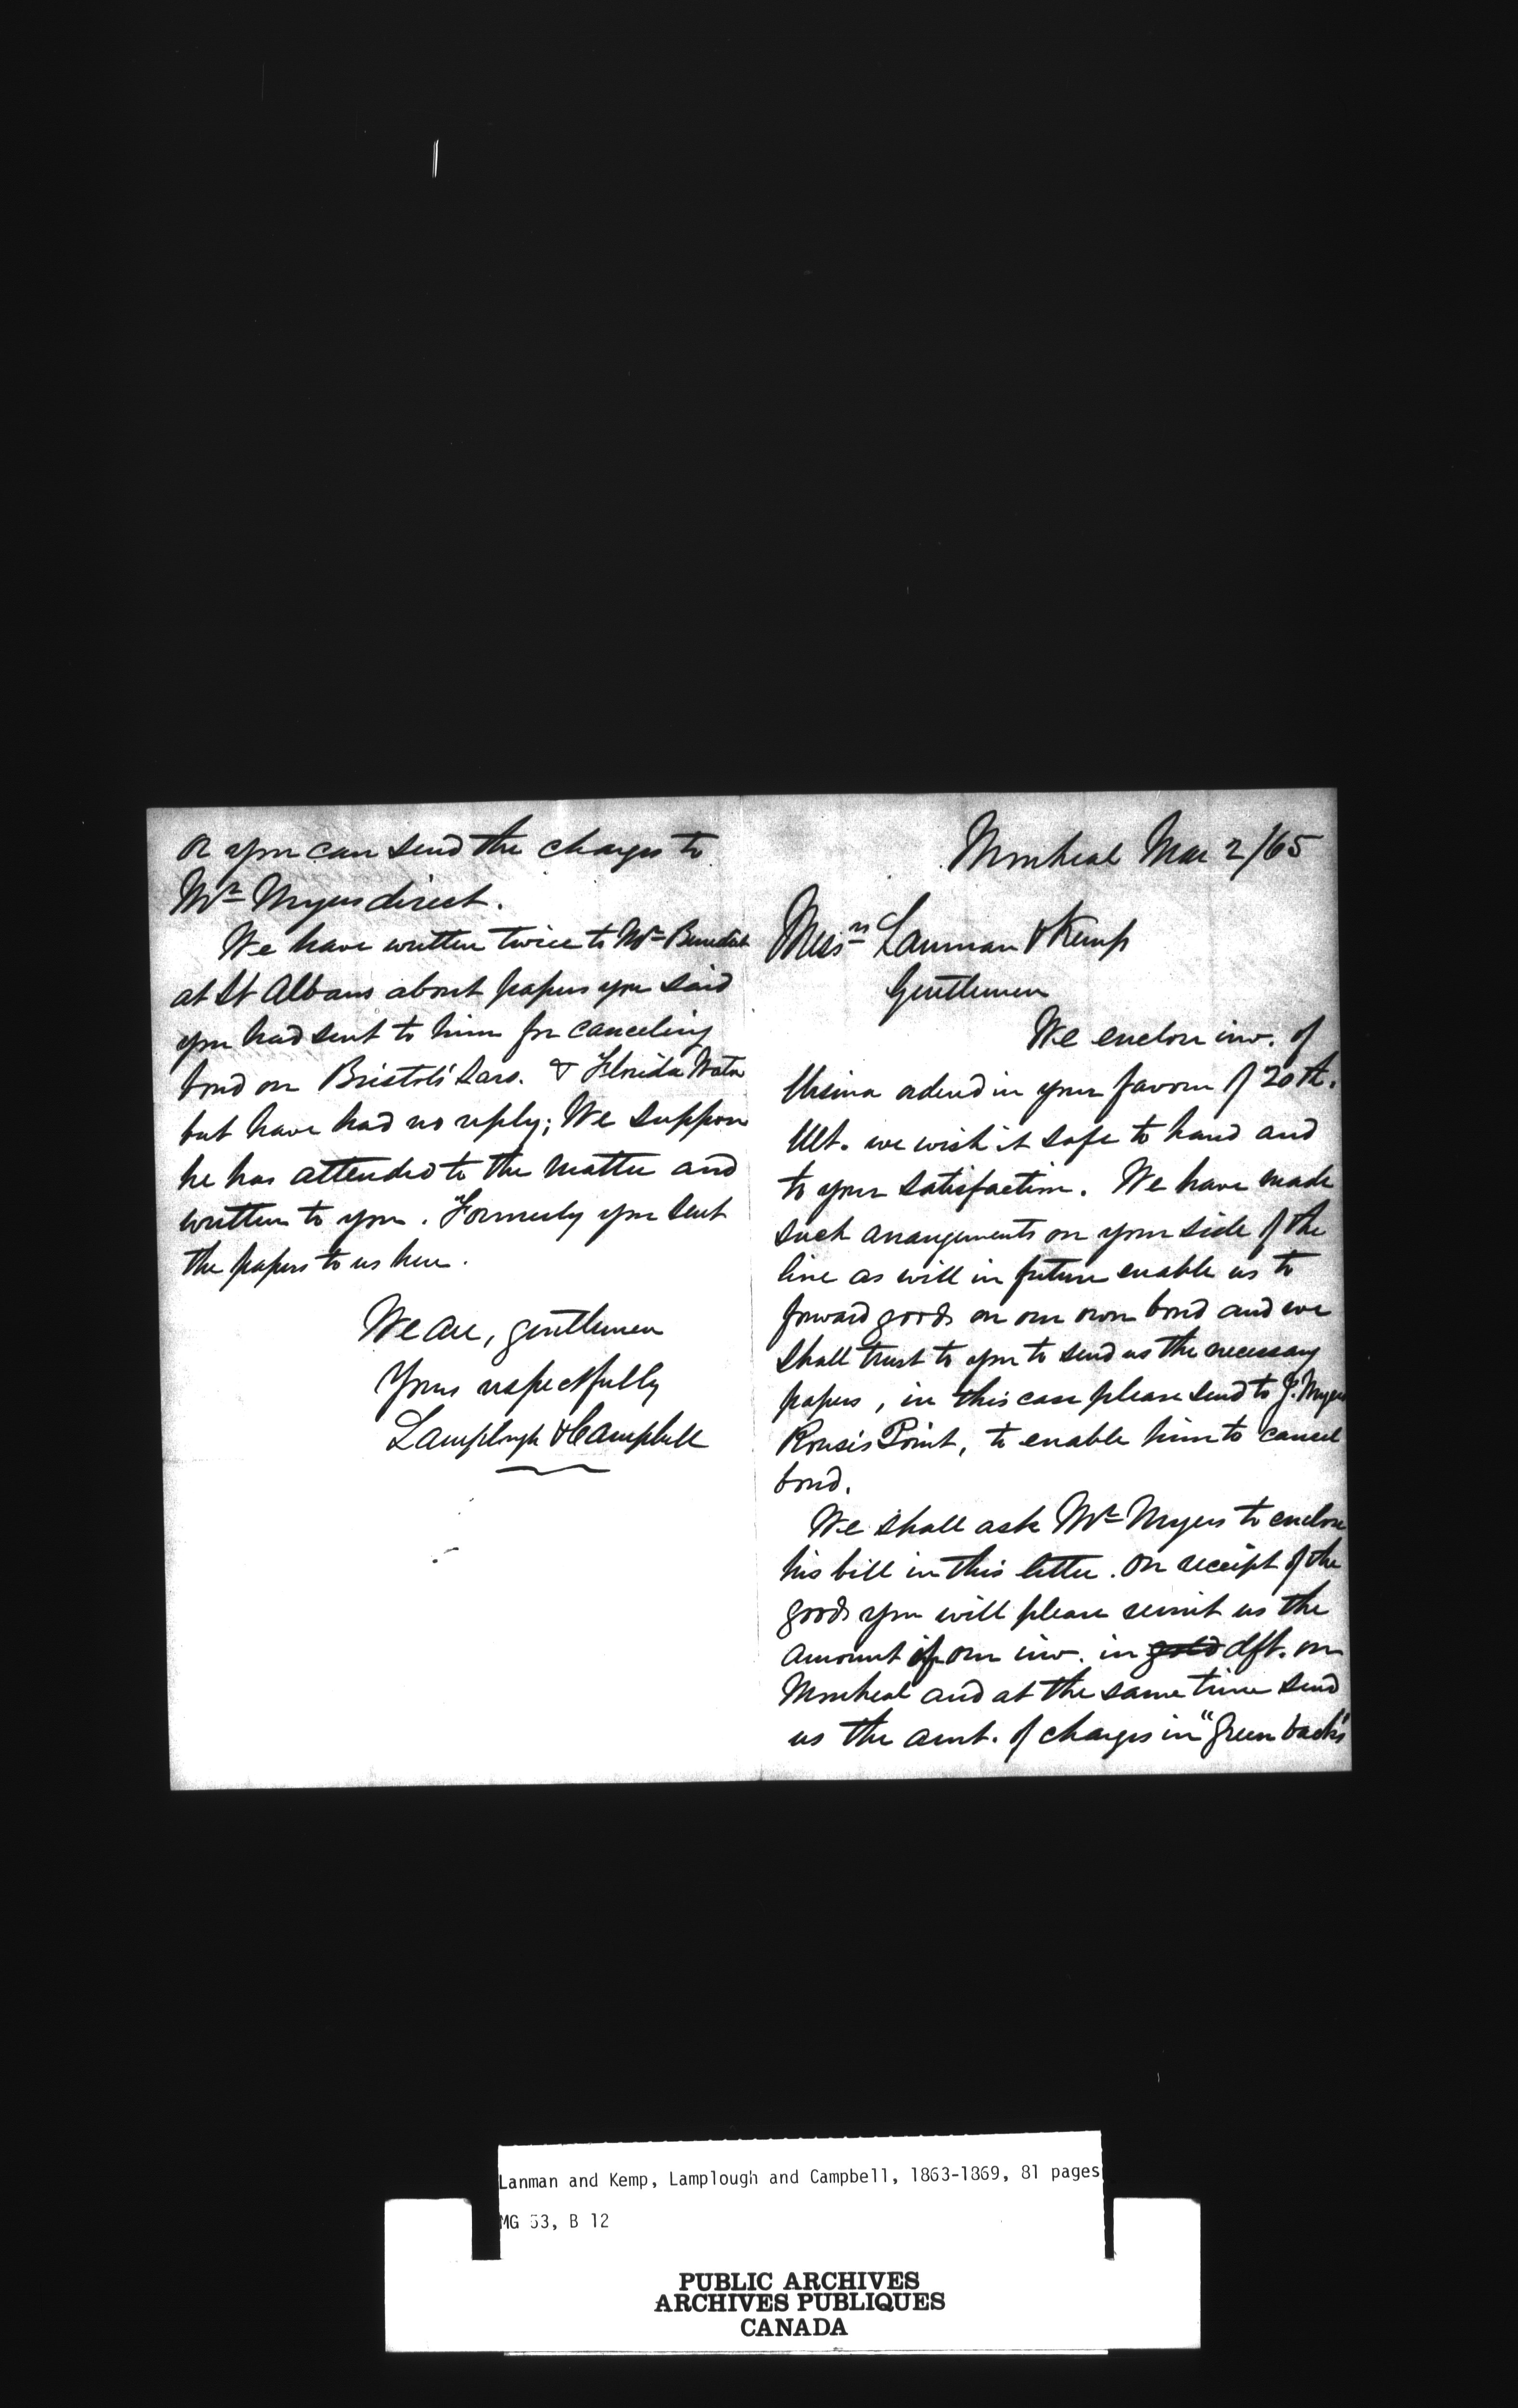 Montreal Mar 2/65
Messrs Lanman & Kemp
Gentlemen
We enclose inv. of
ordered in your favour of 20th.
Ult. we wish it safe to hand and
to your satisfaction. We have made
such arrangements on your side of the
line as will in future enable us to
forward goods on our own bond and we
shall trust to you to send us the necessary
papers, in this case please send to J. Myers
Rouses Point, to enable him to cancel
bond.
We shall ask Mr Myers to enclose
his bill in this letter. On receipt of the
goods you will please remit us the
amount of our inv. in gold dft. on
Montreal and at the same time send
us the amt. of charges in "Green backs"
or you can send the charges to
Mr Myers direct.
We have written twice to Mr Benedict
at St Albans about papers you said
you had sent to him for canceling
bond on Bristol's Sars. & Florida Water
but have had no reply; We suppose
he has attended to the matter and
written to you. Formerly you sent
the papers to us here.
We are, gentlemen
Yours respectfully
Lamplough & Campbell
Lanman and Kemp, Lamplough and Campbell, 1863-1869, 81 pages
MG 53, B 12
PUBLIC ARCHIVES
ARCHIVES PUBLIQUES
CANADA